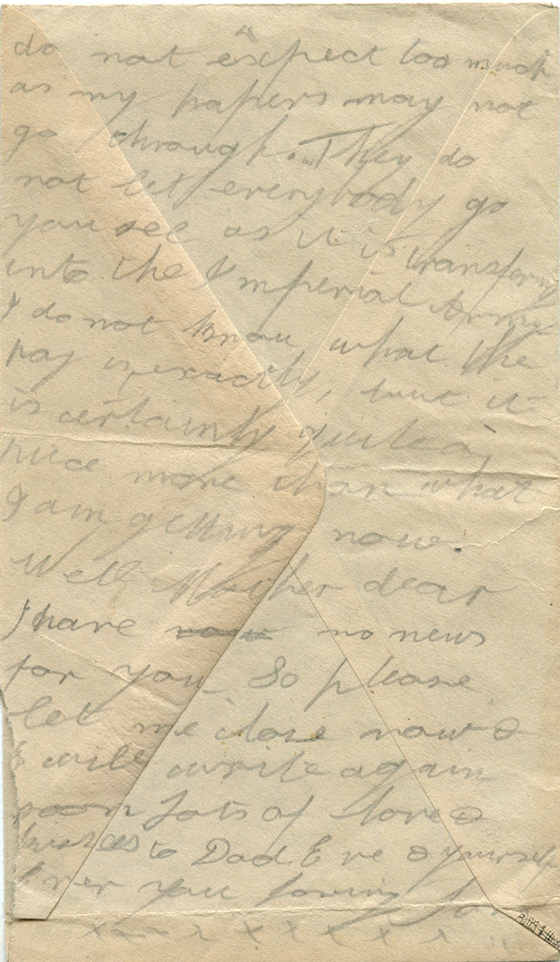 do not expect too much
as my papers may not
go through. They do
not let everybody go
you see as it is transfering
into the Imperial Army
I do not know what the
pay is exactly, but it
is certainly quite a
nice more than what
I am getting now.
Well Mother dear
I have no news
for you. So please
let me close now &
I will write again
soon Lots of love &
kisses to Dad Eve & yourself
Ever your loving
x x x x x x x x